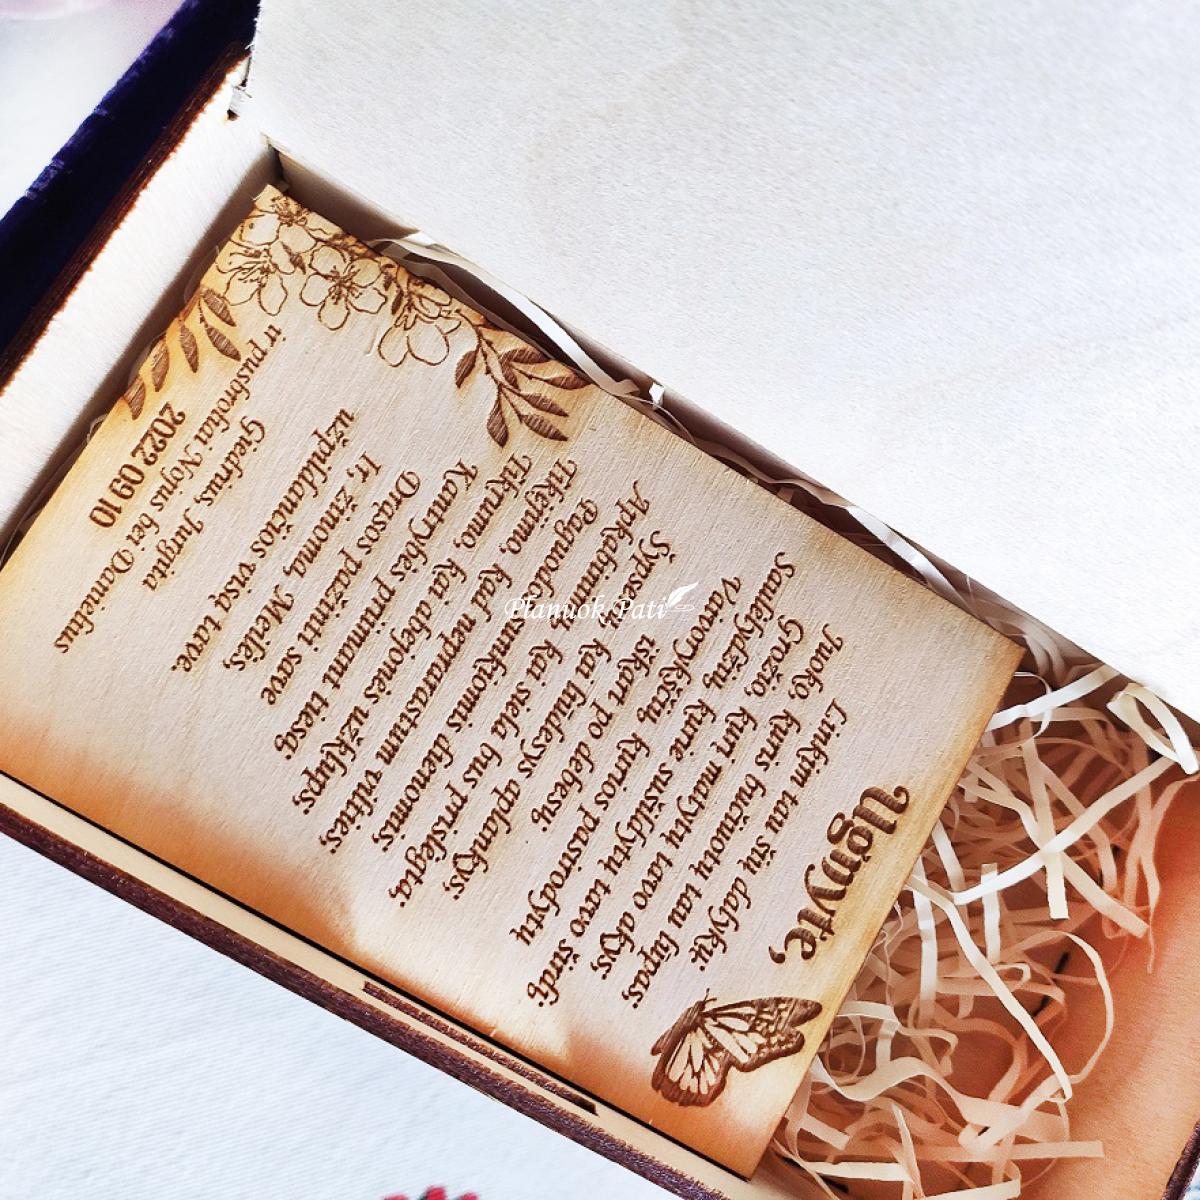 Ugnyte,
Linkim tau šių dalykų:
Juoko, kuris bučiuotų tau lūpas;
Grožio, kurį matytų tavo akys;
Saulėlydžių, kurie sušildytų tavo širdį;
Vaivorykščių, kurios pasirodytų
iškart po debesų;
Šypsenų, kai liūdesys aplankys;
Apkabinimų, kai siela bus prislėgta;
Paguodos sunkiomis dienomis;
Tikėjimo, kad neprarastum vilties;
Tikrumo, kai abejonės užklups;
Kantrybės priimant tiesą;
Drąsos pažinti save
Ir, žinoma, Meilės,
užpildančios visą tave.
Giedrius, Jurgita
ir pusbroliai Nojus bei Danielius
2022 09 10
Planuok Pati